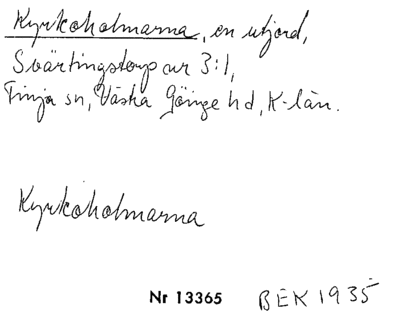 Kyrkoholmarna, en utjord,
Svärtingstorp nr 3:1,
Finja sn, Västra Göinge hd, K-län.
Kyrkoholmarna
Nr 13365 BEK 1935